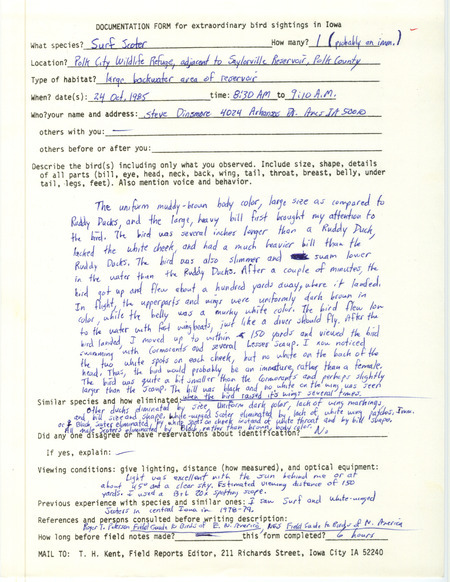 DOCUMENTATION FORM for extraordinary bird sightings in Iowa
What species? Surf Scoter How many? 1 (probably an imm.)
Location? Polk City Wildlife Refuge, adjacent to Saylorville Reservoir, Polk County
Type of habitat? large backwater area of reservoir
When? date(s): 24 Oct. 1985 time: 8:30 AM to 9:10 A.M.
Who? your name and address: Steve Dinsmore 4024 Arkansas Dr. Ames IA 50010
others with you: —
others before or after you:
Describe the bird(s) including only what you observed. Include size, shape, details
of all parts (bill, eye, head, neck, back, wing, tail, throat, breast, belly, under
tail, legs, feet). Also mention voice and behavior.
The uniform muddy-brown body color, large size as compared to
Ruddy Ducks, and the large, heavy bill first brought my attention to
the bird. The bird was several inches larger than a Ruddy Duck,
lacked the white cheek, and had a much heavier bill than the
Ruddy Ducks. The bird was also slimmer and swam lower
in the water than the Ruddy Ducks. After a couple of minutes, the
bird got up and flew about a hundred yards away, where it landed.
In flight, the upperparts and wings were uniformly dark brown in
color, while the belly was a murky white color. The bird flew low
to the water with fast wingbeats, just like a diver should fly. After the
bird landed, I moved up to within 150 yards and viewed the bird
swimming with Cormorants and several Lesser Scaup. I now noticed
the two white spots on each cheek, but no white on the back of the
head. Thus, the bird would probably be an immature, rather than a female.
The bird was quite a bit smaller than the Cormorants and perhaps slightly
larger than the Scaup. The bill was black and no white on the wing was seen
when the bird raised its wings several times.
Similar species and how eliminated:
Other ducks eliminated by size, uniform dark color, lack of wing markings,
and bill size and shape. White-winged Scoter eliminated by lack of white wing patches. Imm.
or ♀ Black Scoter eliminated by white spots on cheek instead of white throat and by bill shape.
All male Scoters eliminated by black, rather than brown, body color.
Did any one disagree or have reservations about identification? No
If yes, explain: —
Viewing conditions: give lighting, distance (how measured), and optical equipment:
Light was excellent with the sun behind me or at
about 45° and a clear sky. Estimated viewing distance of 150
yards. I used a B+L 20x spotting scope.
Previous experience with species and similar ones: I saw Surf and White-winged
Scoters in central Iowa in 1978-79.
References and persons consulted before writing description:
Roger T. Peterson Field Guide to Birds of E. N. America NGS Field Guide to Birds of N. America
How long before field notes made? this form completed? 6 hours
MAIL TO: T. H. Kent, Field Reports Editor, 211 Richards Street, Iowa City IA 52240